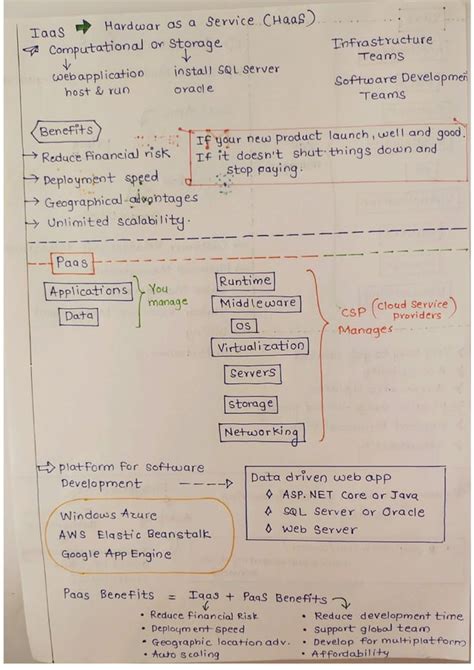 IaaS → Hardwar as a Service (HaaS)
Computational or Storage
Infrastructure
Teams
web application
host & run
install SQL server
oracle
Software Developmen
Teams
Benefits
→ Reduce financial risk
→ Deployment speed
→ Geographical advantages
→ Unlimited scalability.
If your new product launch, well and good.
If it doesn't shut things down and
stop paying.
Paas
Applications
Data
You
manage
Runtime
Middleware
OS
Virtualization
Servers
Storage
Networking
CSP (Cloud Service
providers)
Manages
⇒ platform for software
Development
Data driven web app
◊ ASP.NET Core or Java
◊ SQL Server or Oracle
◊ Web Server
Windows Azure
AWS Elastic Beanstalk
Google App Engine
Paas Benefits = Iaas + PaaS Benefits
• Reduce Financial Risk
• Deployment speed
• Geographic location adv.
• Auto scaling
• Reduce development time
• Support global team
• Develop for multiplatform
• Affordability